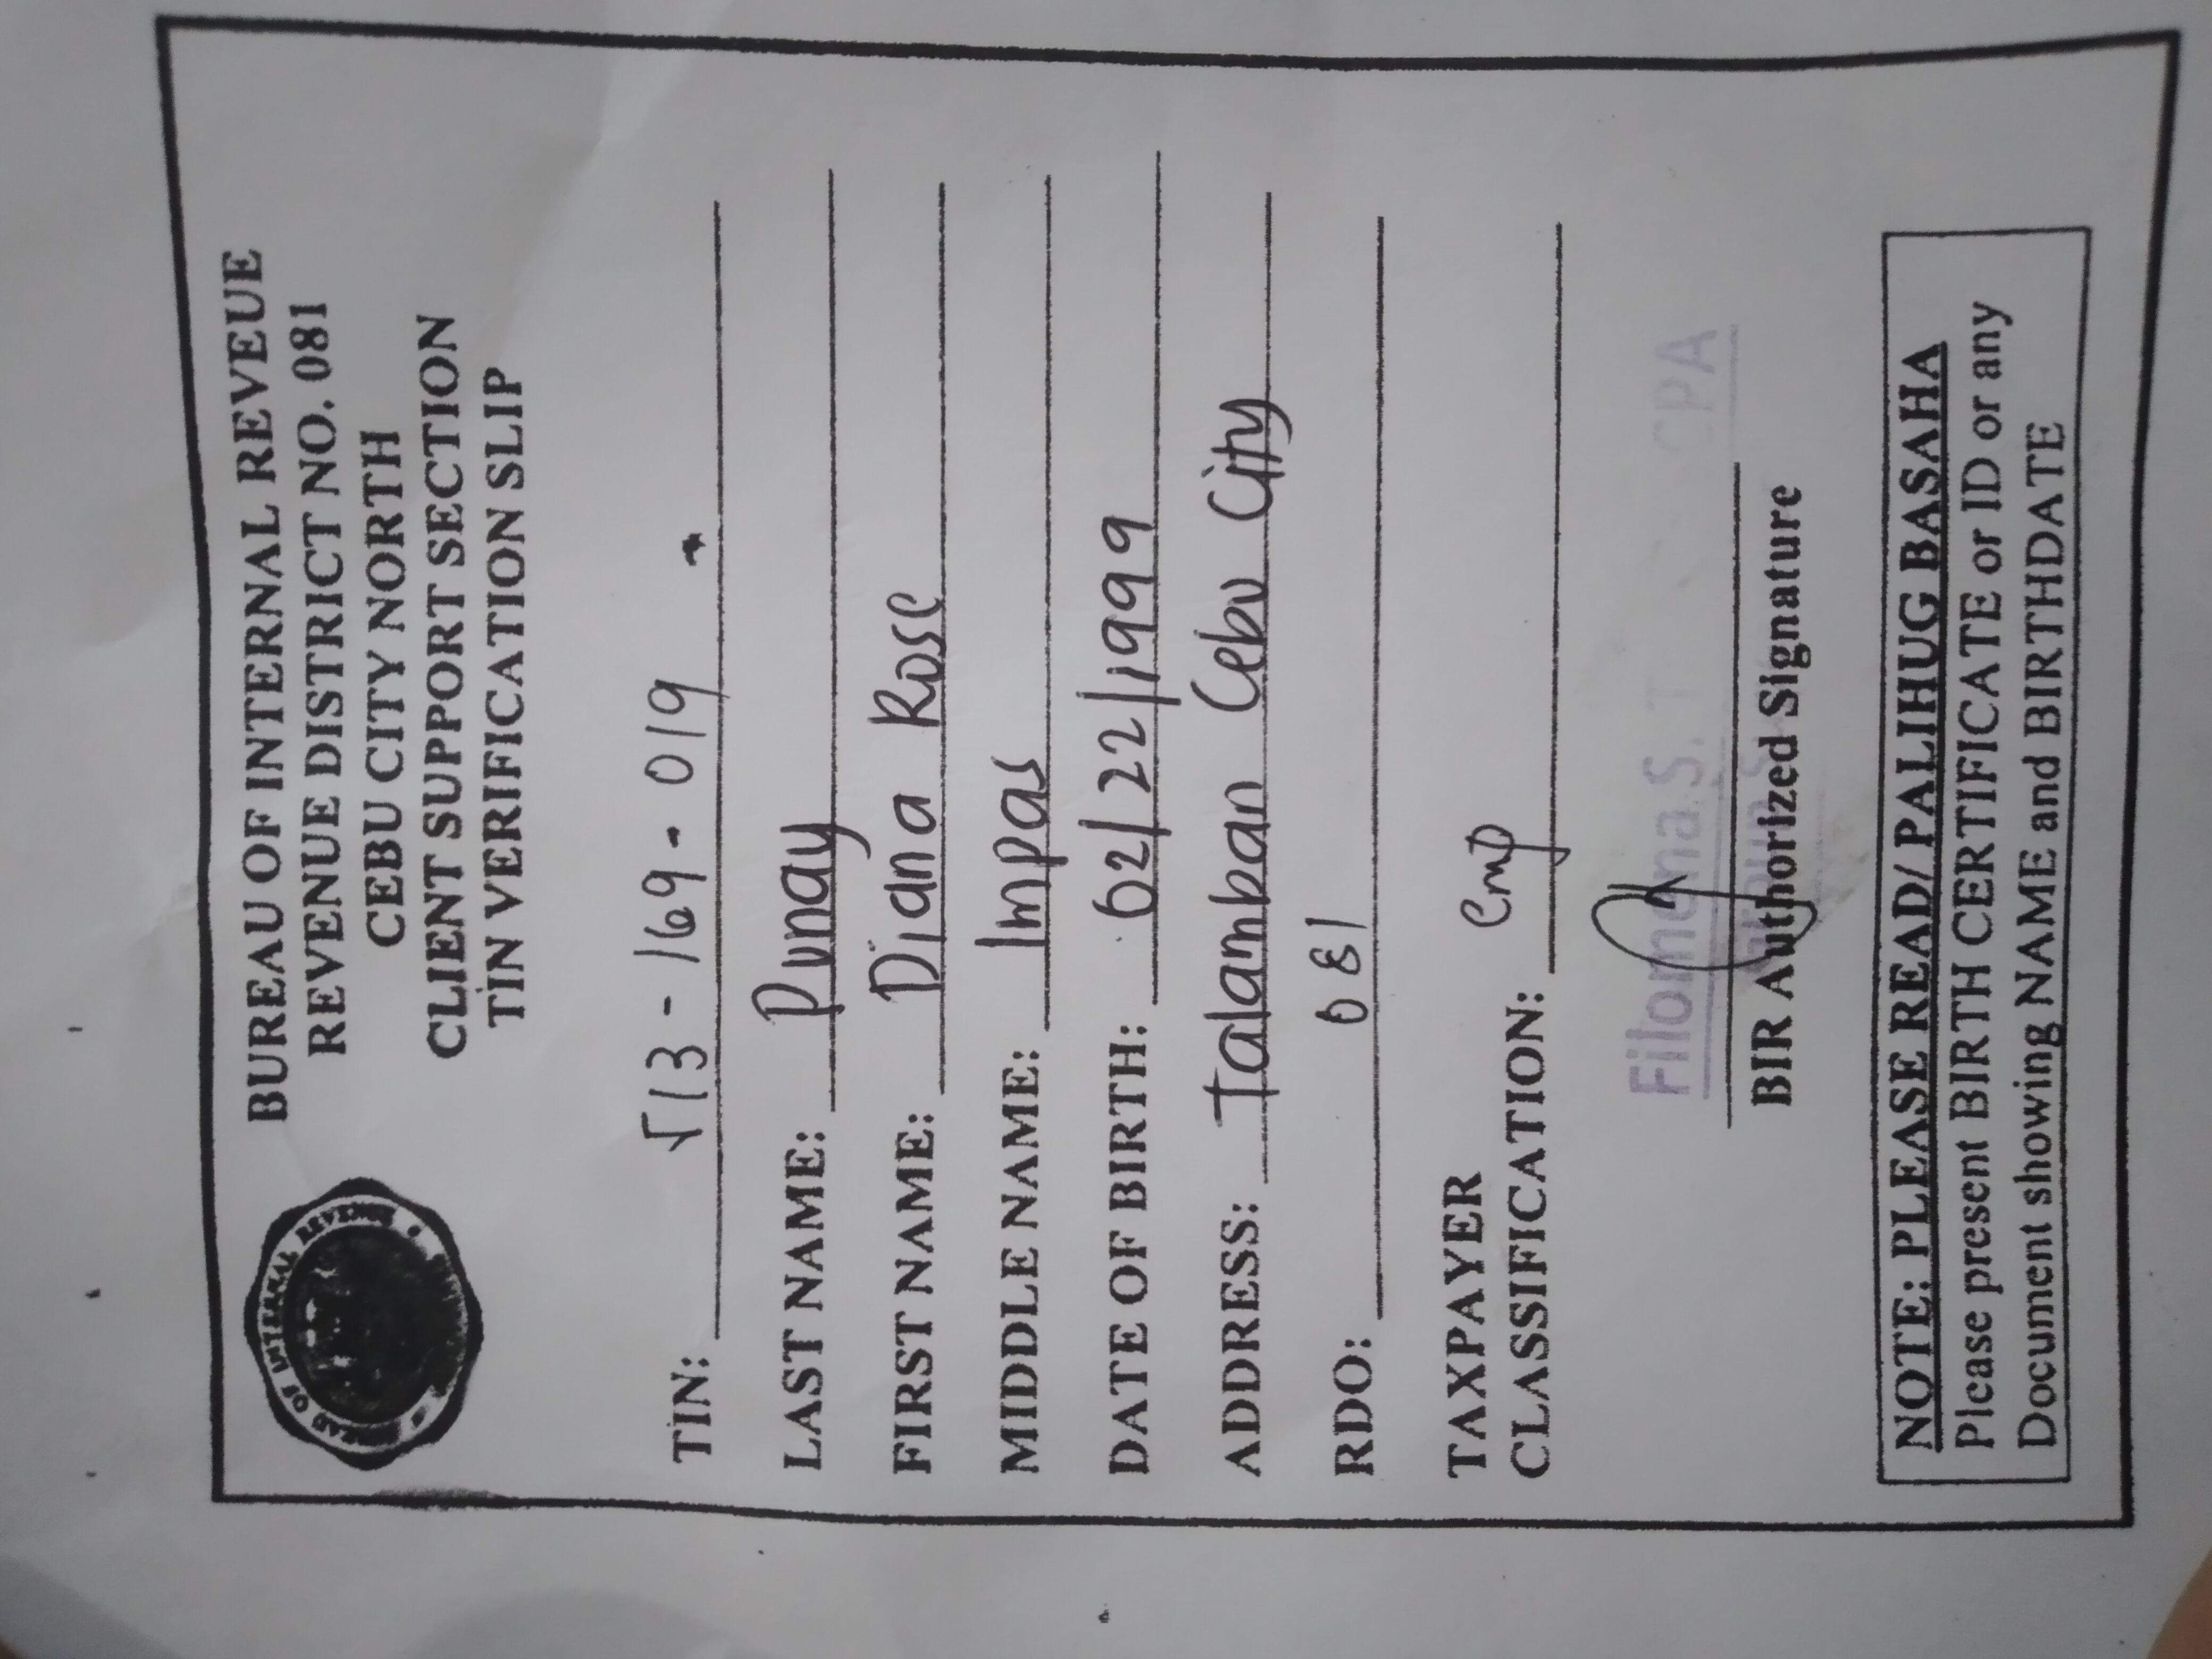 BUREAU OF INTERNAL REVEUE
REVENUE DISTRICT NO. 081
CEBU CITY NORTH
CLIENT SUPPORT SECTION
TIN VERIFICATION SLIP
BUREAU OF INTERNAL REVENUE
TIN: 713-169-019
LAST NAME: Punay
FIRST NAME: Diana Rose
MIDDLE NAME: Impas
DATE OF BIRTH: 02/22/1999
ADDRESS: Talamban Cebu City
RDO: 081
TAXPAYER
CLASSIFICATION: emp
Filomena S. T CPA
BIR Authorized Signature
NOTE: PLEASE READ/ PALIHUG BASAHA
Please present BIRTH CERTIFICATE or ID or any
Document showing NAME and BIRTHDATE